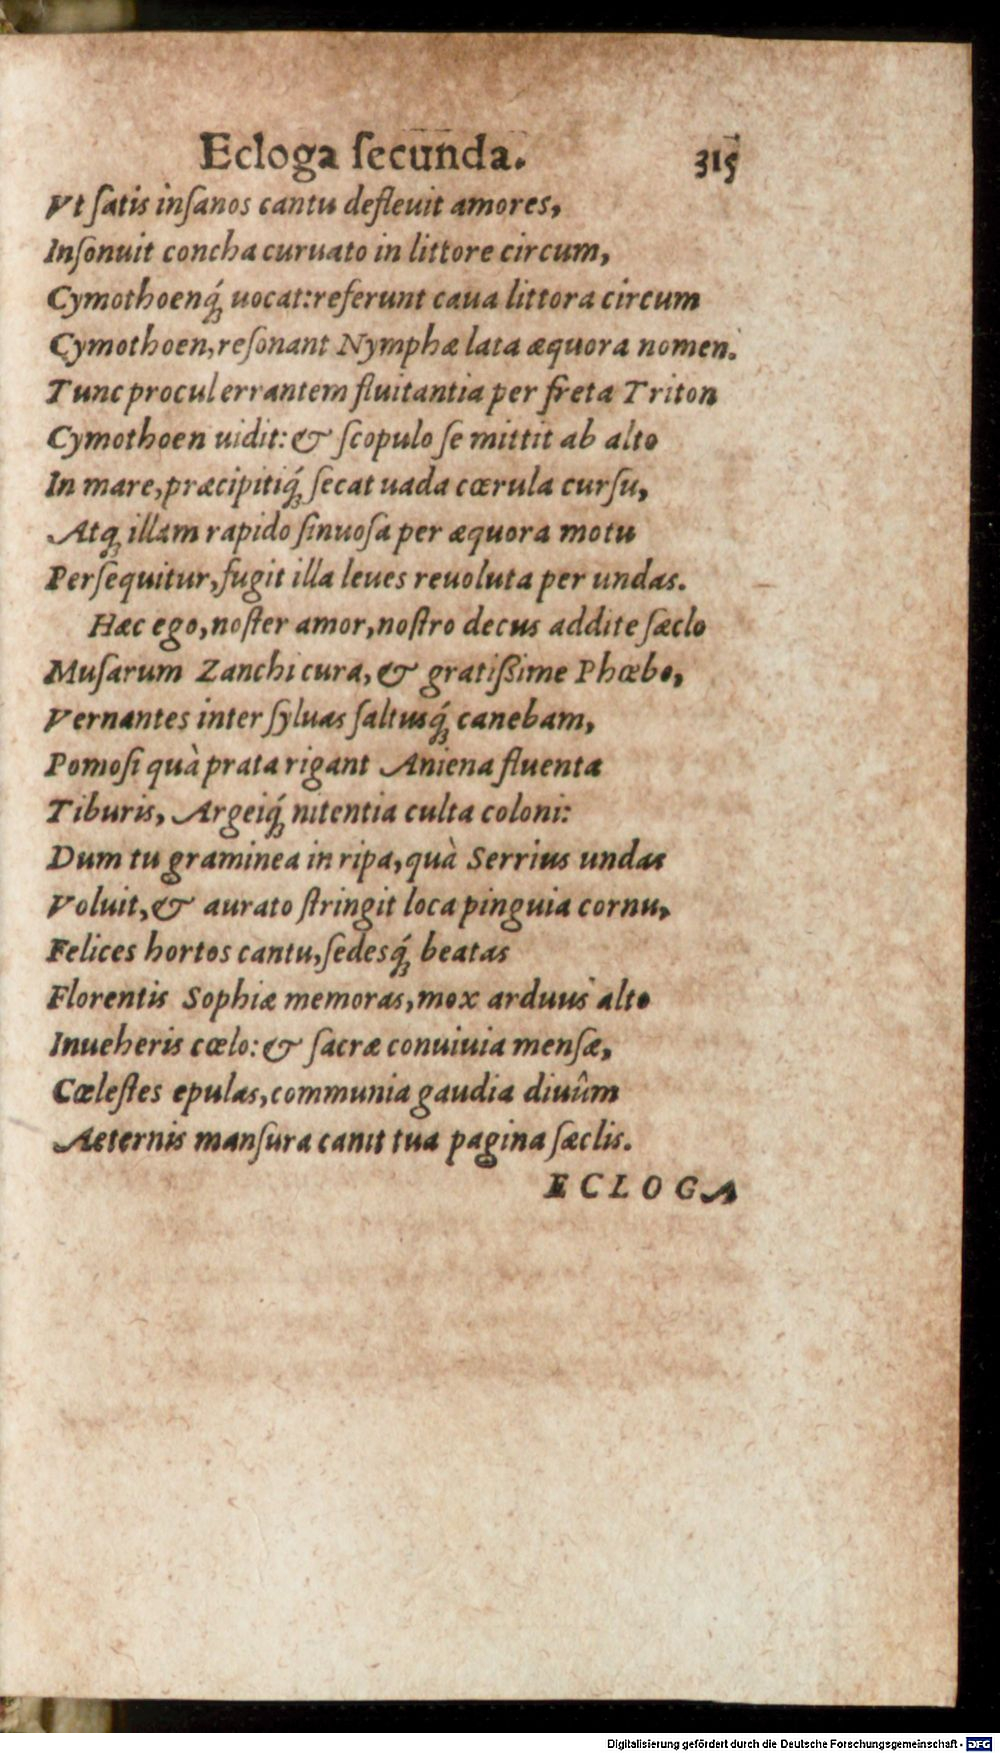 Ecloga ſecunda. 315
Vt ſatis inſanos cantu defleuit amores,
Inſonuit concha curuato in littore circum,
Cymothoenq́ꝫ uocat:referunt caua littora circum
Cymothoen,reſonant Nymphæ lata æquora nomen.
Tunc procul errantem fluitantia per freta Triton
Cymothoen uidit:& ſcopulo ſe mittit ab alto
In mare,præcipitiq́ꝫ ſecat uada cœrula curſu,
Atqꝫ illam rapido ſinuoſa per æquora motu
Perſequitur,fugit illa leues reuoluta per undas.
Hæc ego,noſter amor,noſtro decus addite ſæclo
Muſarum Zanchi cura,& gratißime Phœbo,
Vernantes inter ſyluas ſaltusq́ꝫ canebam,
Pomoſi quà prata rigant Aniena fluenta
Tiburis, Argeiq́ꝫ nitentia culta coloni:
Dum tu graminea in ripa,quà Serrius undas
Voluit,& aurato ſtringit loca pinguia cornu,
Felices hortos cantu,ſedesq́ꝫ beatas
Florentis Sophiæ memoras,mox arduus alto
Inueheris cœlo:& ſacræ conuiuia menſæ,
Cœleſtes epulas,communia gaudia diuûm
Aeternis manſura canit tua pagina ſæclis.
ECLOGA
Digitalisierung gefördert durch die Deutsche Forschungsgemeinschaft - DFG